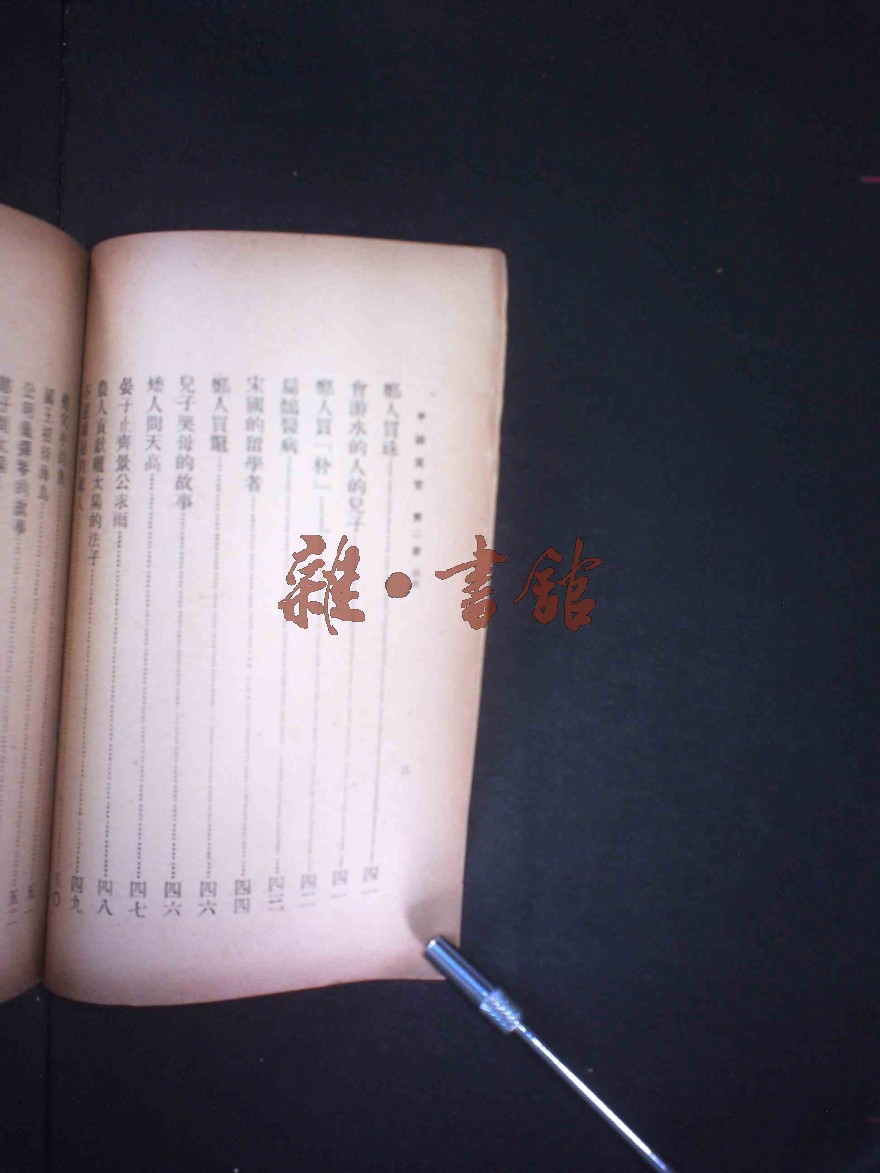 鄭人買珠 四一
會游水的人的兒子 四一
鄭人買「朴」 四二
扁鵲醫病 四三
宋國的留學者 四四
鄭人買鼈 四六
兒子哭母的故事 四六
矮人問天高 四七
晏子止齊景公求雨 四八
農人貢獻曬太陽的法子 四九
五〇
的故事 五一
五二
雜·書館